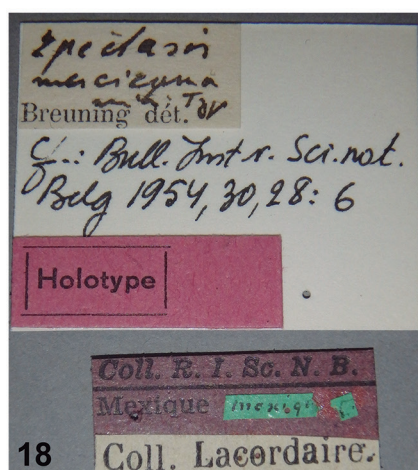 Epectasis
mexicana
Breuning dét.
Cf.: Bull. Inst. r. Sci. nat.
Belg 1954, 30, 28: 6
Holotype
Coll. R. I. Sc. N. B.
Mexique
18
Coll. Lacordaire.